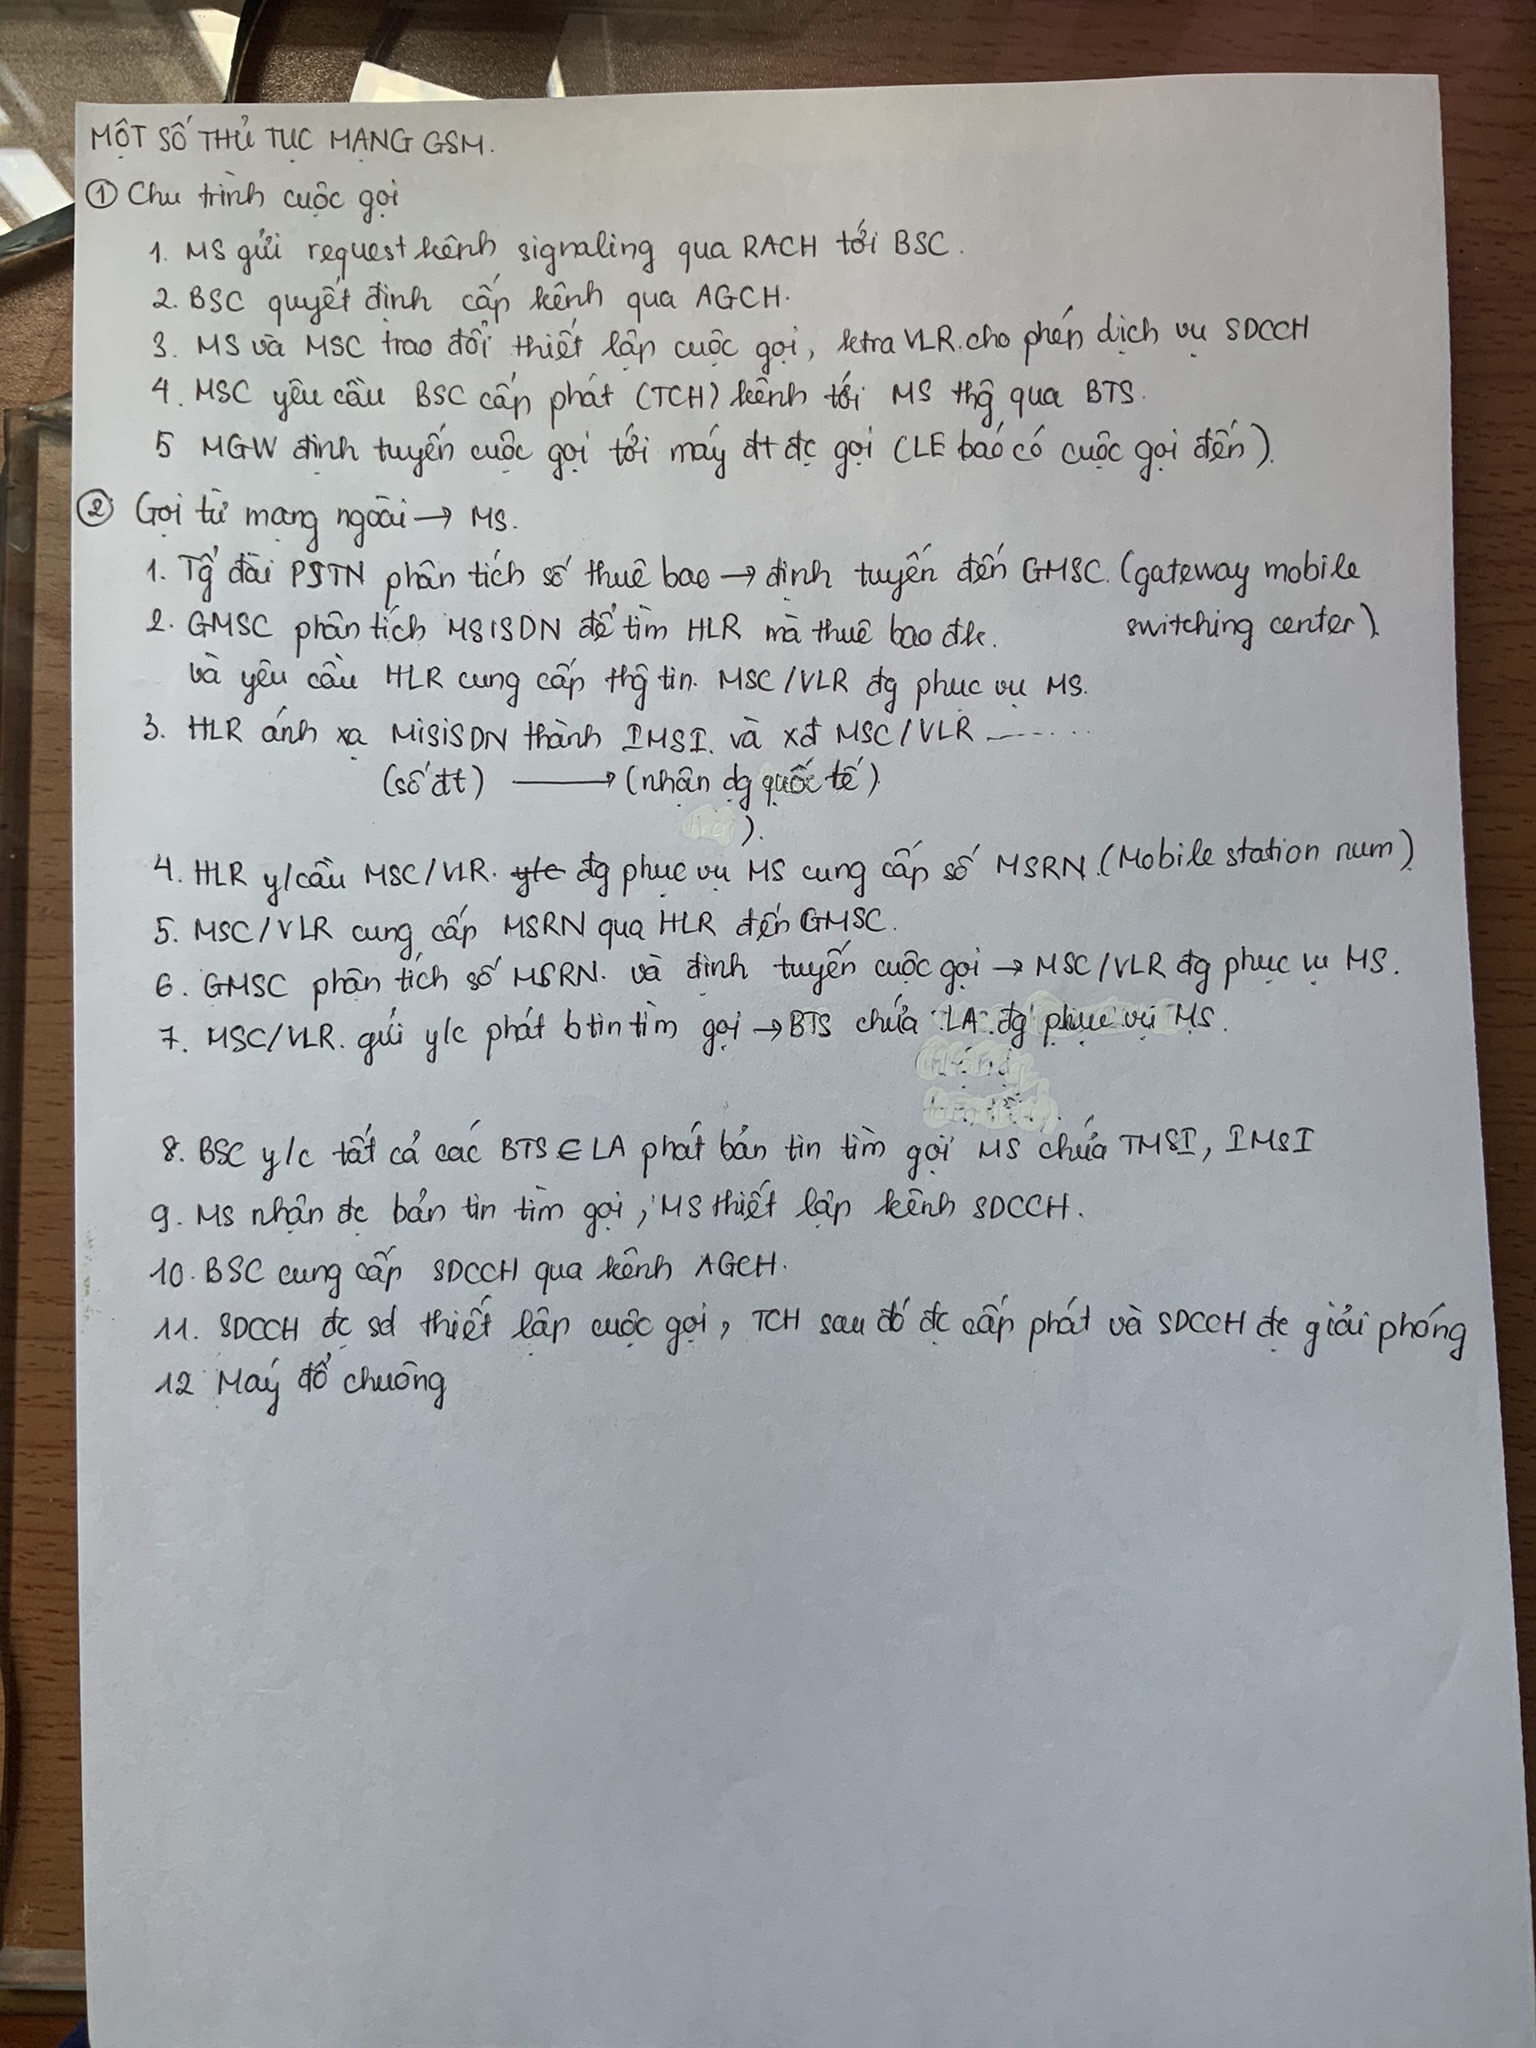 MỘT SỐ THỦ TỤC MẠNG GSM.
① Chu trình cuộc gọi
1. MS gửi request kênh signaling qua RACH tới BSC.
2. BSC quyết định cấp kênh qua AGCH.
3. MS và MSC trao đổi thiết lập cuộc gọi, ktra VLR. cho phép dịch vụ SDCCH
4. MSC yêu cầu BSC cấp phát (TCH) kênh tới MS thg qua BTS.
5 MGW định tuyến cuộc gọi tới máy đt đc gọi (LE báo có cuộc gọi đến).
② Gọi từ mạng ngoài → MS.
1. Tổ đài PSTN phân tích số thuê bao → định tuyến đến GMSC. (gateway mobile
switching center).
2. GMSC phân tích MSISDN để tìm HLR mà thuê bao đk.
và yêu cầu HLR cung cấp thg tin. MSC/VLR đg phục vụ MS.
3. HLR ánh xạ MiSiSDN thành IMSI. và xđ MSC/VLR .......
(số đt) → (nhận dg quốc tế)
).
4. HLR y/cầu MSC/VLR. đg phục vụ MS cung cấp số MSRN. (Mobile station num)
5. MSC/VLR cung cấp MSRN qua HLR đến GMSC.
6. GMSC phân tích số MSRN. và định tuyến cuộc gọi → MSC/VLR đg phục vụ MS.
7. MSC/VLR. gửi y/c phát b tin tìm gọi → BTS chứa LA đg phục vụ MS.
8. BSC y/c tất cả các BTS ∈ LA phát bản tin tìm gọi MS chứa TMSI, IMSI
9. MS nhận đc bản tin tìm gọi, MS thiết lập kênh SDCCH.
10. BSC cung cấp SDCCH qua kênh AGCH.
11. SDCCH đc sd thiết lập cuộc gọi, TCH sau đó đc cấp phát và SDCCH đc giải phóng
12 Máy đổ chuông